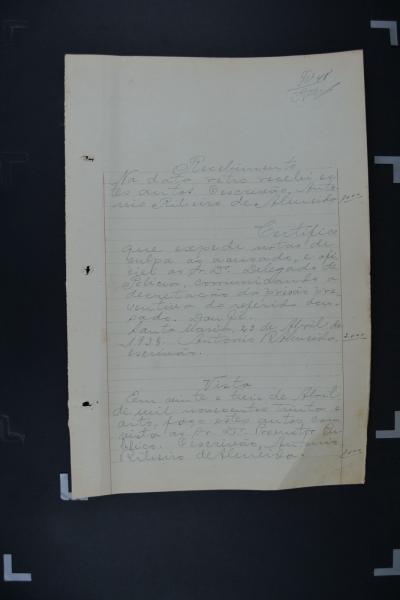 Recebimento
Na data retro recebi es-
tes autos. O escrivão, Anto-
nio Ribeiro de Almeida
Certifico
que expedi notas de
culpa ao acusado, e ofi-
ciei ao Sr. Dr. Delegado de
Policia, comunicando a
decretação da prisão pre-
ventiva do referido acu-
sado. Dou fé.
Santa Maria, 23 de Abril de
1938. Antonio R. Almeida
escrivão.
2000
Vista
Em vinte e tres de Abril
de mil novecentos trinta e
oito, faço estes autos com
vista ao Sr. Dr. Promotor Pu-
blico. O escrivão, Antonio
Ribeiro de Almeida.